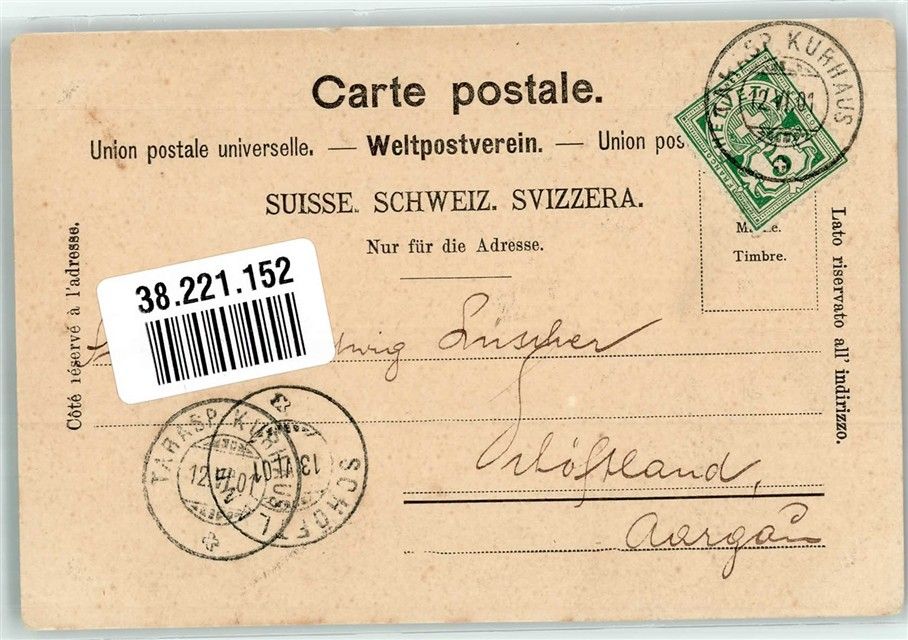 Carte postale.
Union postale universelle. — Weltpostverein. — Union pos
SUISSE. SCHWEIZ. SVIZZERA.
Nur für die Adresse.
TARASP KURHAUS
12.VI.01
Timbre.
Côté réservé à l'adresse.
Lato riservato all' indirizzo.
38.221.152
wig Lüscher
Schöftland,
Aargau
TARASP KURHAUS
12.VI.01
SCHÖFTL
13.VI.01